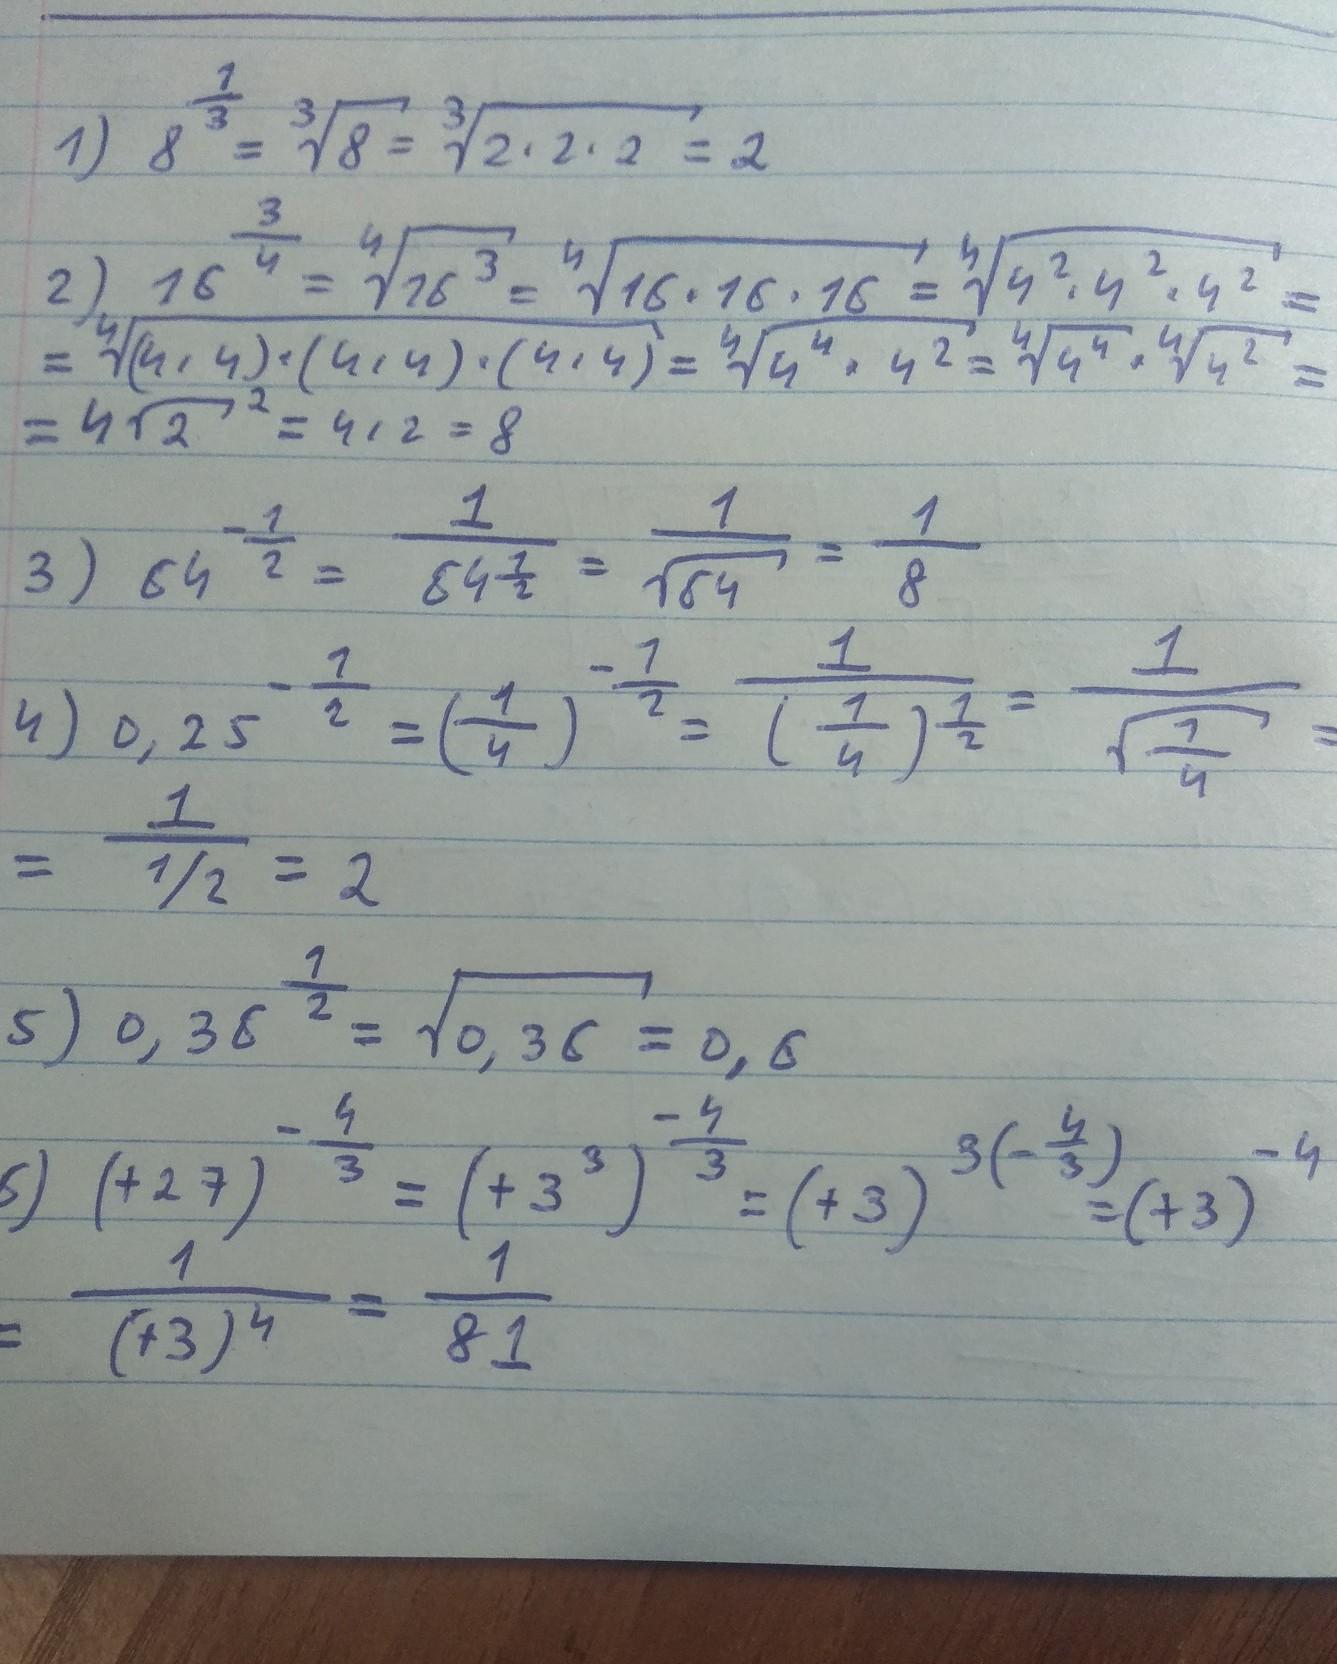 1) 8^(1/3) = ∛8 = ∛(2·2·2) = 2
2) 16^(3/4) = ∜(16^3) = ∜(16·16·16) = ∜(4^2·4^2·4^2) =
= ∜((4·4)·(4·4)·(4·4)) = ∜(4^4·4^2) = ∜(4^4)·∜(4^2) =
= 4√2^2 = 4·2 = 8
3) 64^(-1/2) = 1/(64^(1/2)) = 1/√64 = 1/8
4) 0,25^(-1/2) = (1/4)^(-1/2) = 1/((1/4)^(1/2)) = 1/√(1/4) =
= 1/(1/2) = 2
5) 0,36^(1/2) = √(0,36) = 0,6
6) (+27)^(-4/3) = (+3^3)^(-4/3) = (+3)^(3(-4/3)) = (+3)^(-4)
= 1/((+3)^4) = 1/81